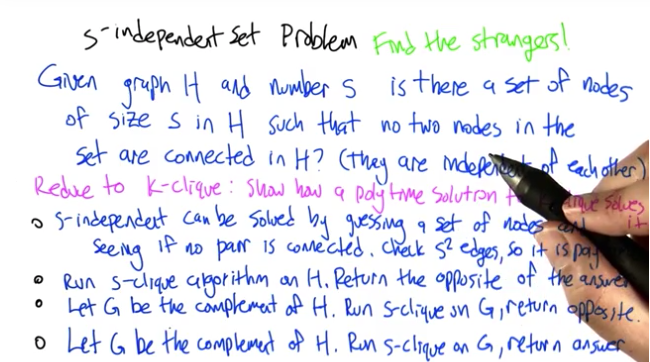 s-independent set Problem Find the strangers!
Given graph H and number s is there a set of nodes
of size s in H such that no two nodes in the
set are connected in H? (They are independent of each other)
Reduce to K-clique: Show how a polytime solution to clique solves it
s-independent can be solved by guessing a set of nodes and
seeing if no pair is connected. Check s² edges, so it is poly
Run s-clique algorithm on H. Return the opposite of the answer
Let G be the complement of H. Run s-clique on G, return opposite.
Let G be the complement of H. Run s-clique on G, return answer